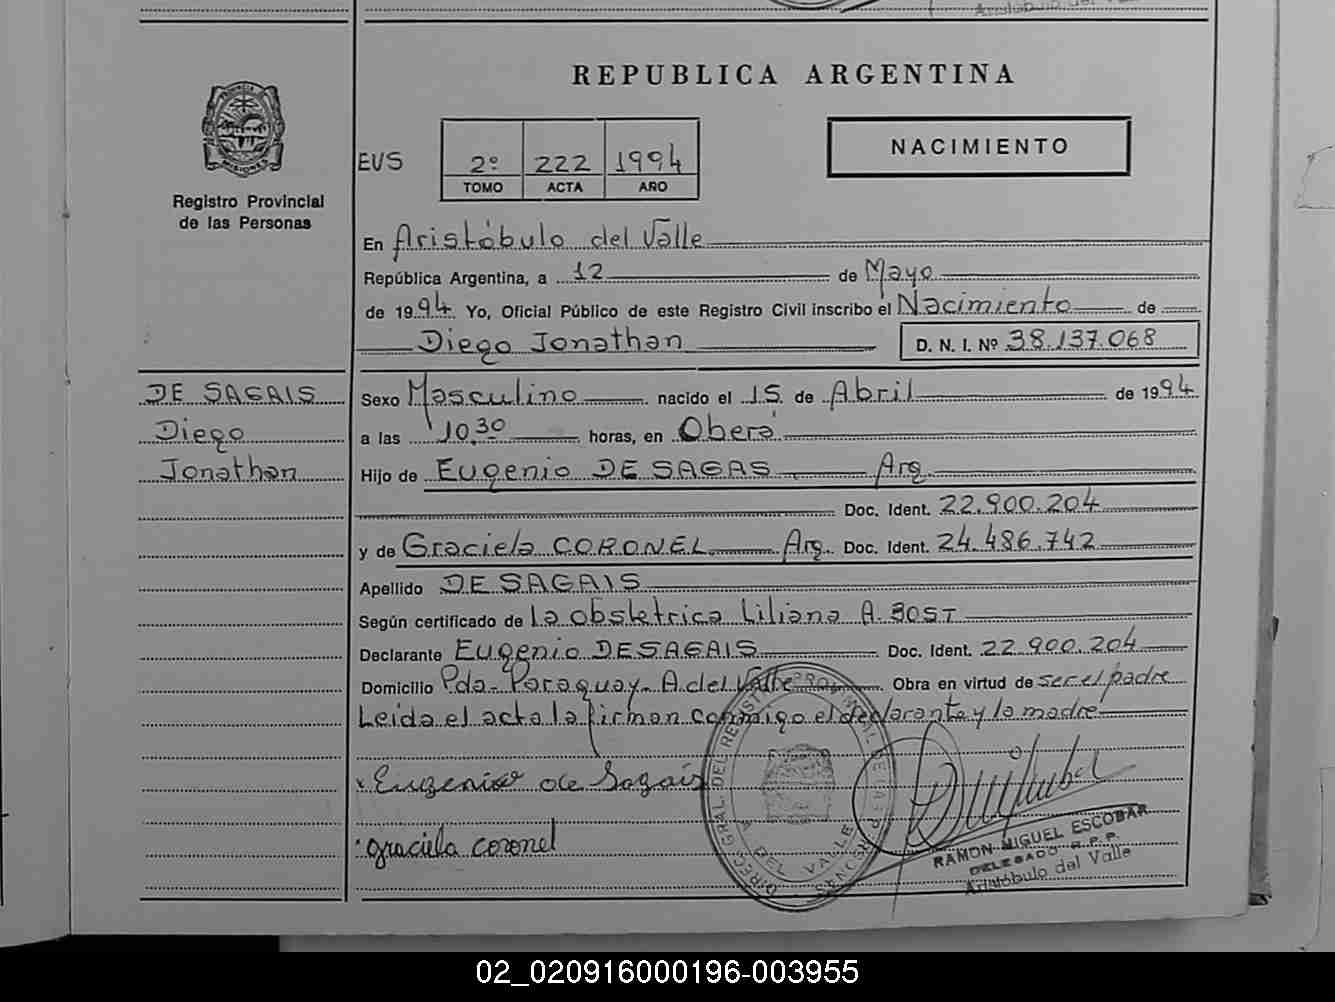 REPUBLICA ARGENTINA
PROVINCIA DE
MISIONES
Registro Provincial
de las Personas
EUS
2º 222 1994
TOMO ACTA AÑO
NACIMIENTO
En Aristóbulo del Valle
República Argentina, a 12 de Mayo
de 1994. Yo, Oficial Público de este Registro Civil inscribo el Nacimiento de
Diego Jonathan D. N. I. Nº 38.137.068
DE SAGAIS
Diego
Jonathan
Sexo Masculino nacido el 15 de Abril de 1994
a las 10,30 horas, en Oberá
Hijo de Eugenio DE SAGAS Arg.
Doc. Ident. 22.900.204
y de Graciela CORONEL Arg. Doc. Ident. 24.486.742
Apellido DE SAGAIS
Según certificado de la obstetrica Liliana A. BOST
Declarante Eugenio DE SAGAIS Doc. Ident. 22.900.204
Domicilio Pda. Paraguay. A. del Valle Obra en virtud de ser el padre
Leida el acta la firman conmigo el declarante y la madre
Eugenio de Sagais
graciela coronel
DIREC. GRAL. DEL REGISTRO PROVINCIAL DE LAS PERSONAS
A DEL VALLE
RAMON MIGUEL ESCOBAR
DELEGADO R.P.P.
Aristóbulo del Valle
02_020916000196-003955